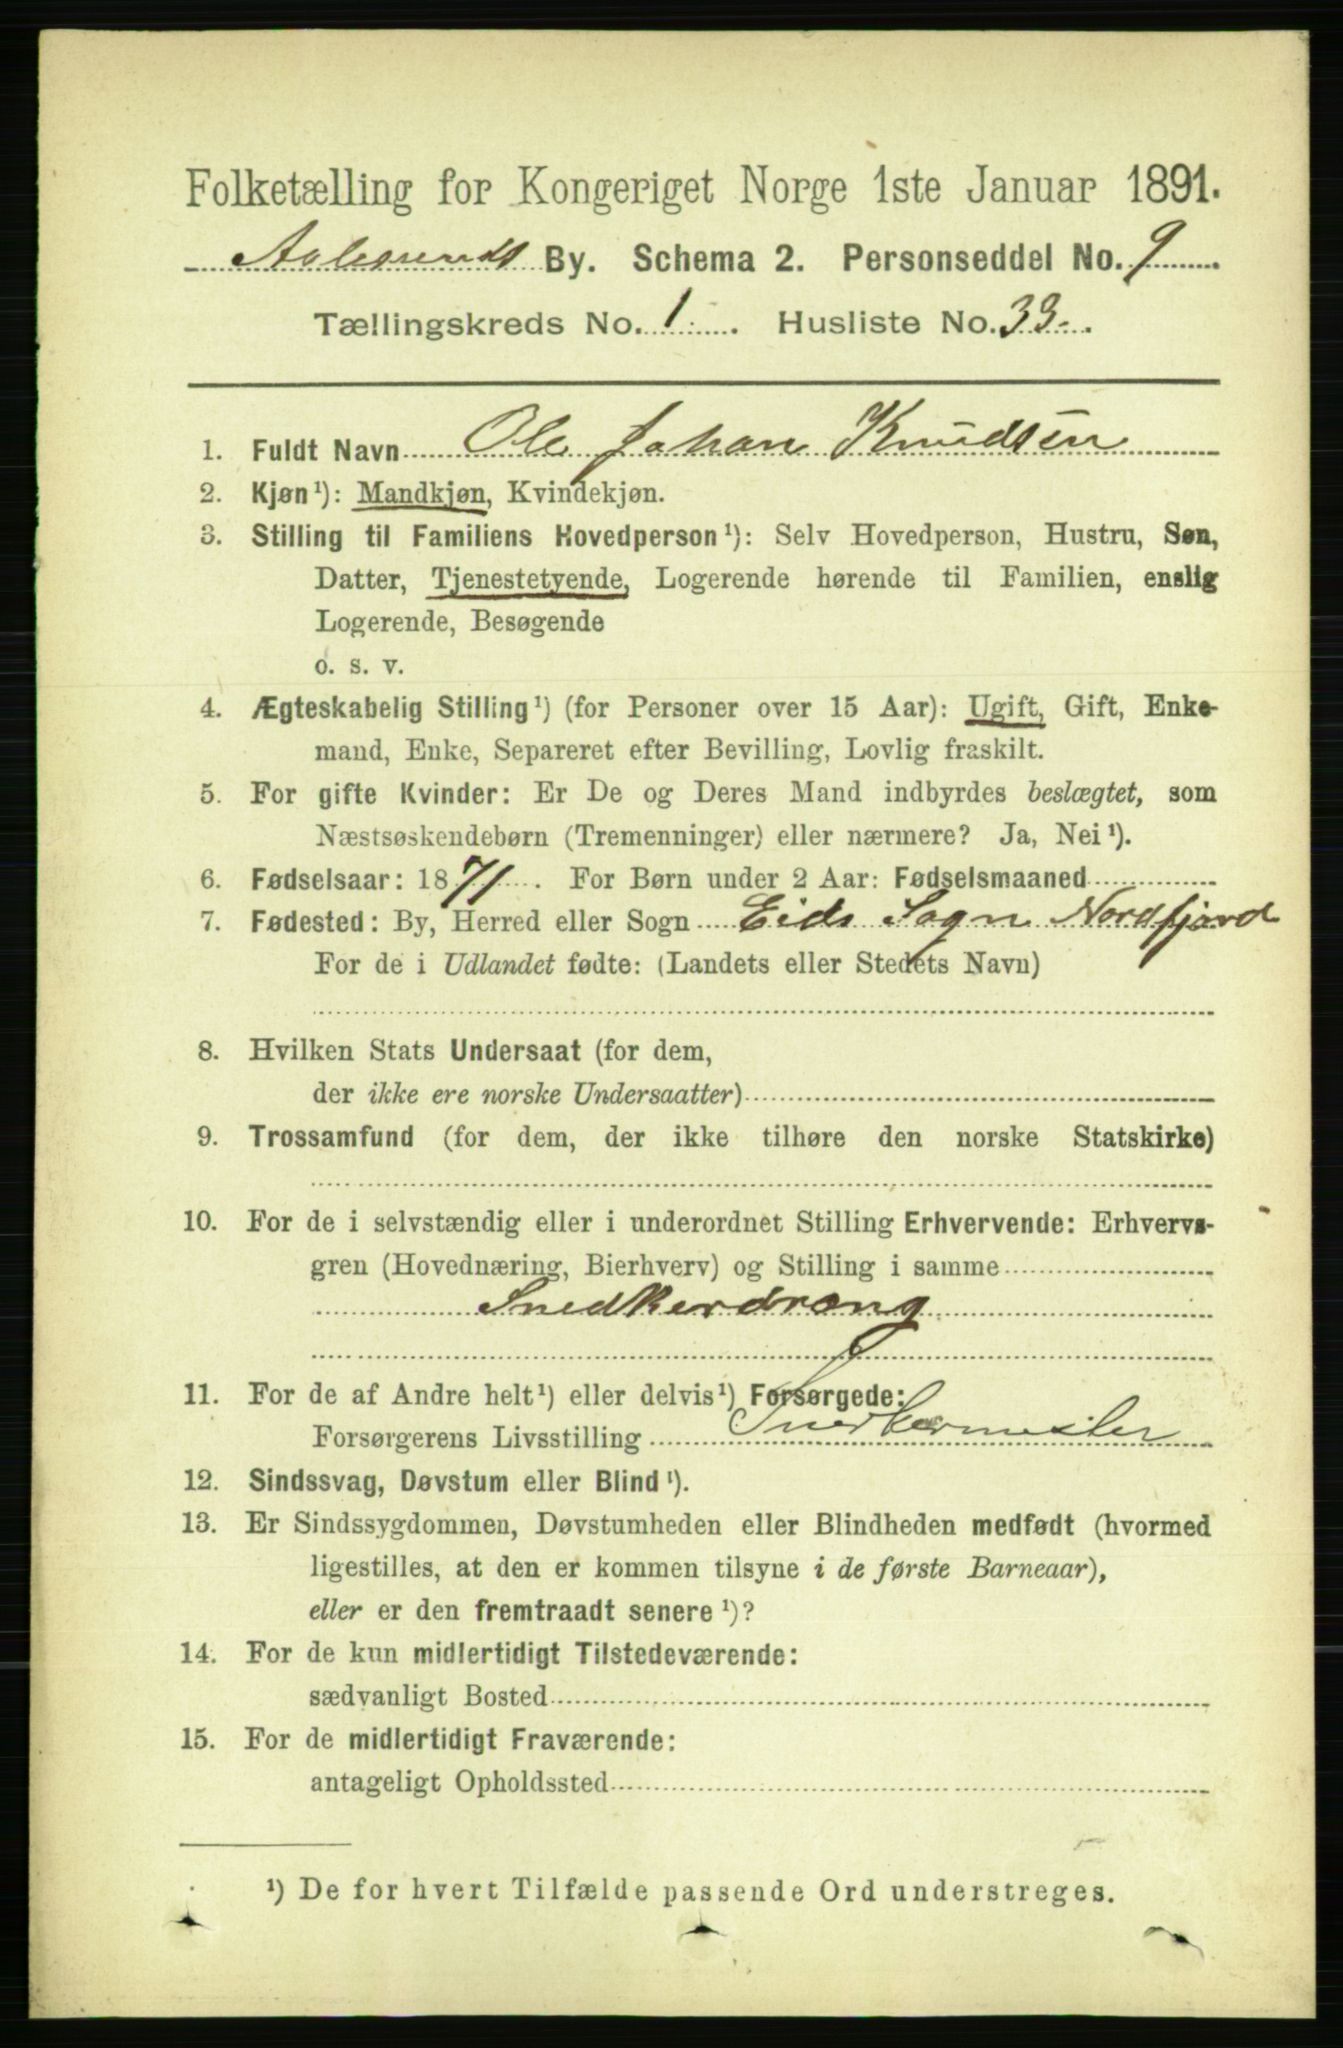 Folketælling for Kongeriget Norge 1ste Januar 1891.
Aalesunds By. Schema 2. Personseddel No. 9
Tællingskreds No. 1. Husliste No. 33.
1. Fuldt Navn Ole Johan Knudsen
2. Kjøn¹): Mandkjøn, Kvindekjøn.
3. Stilling til Familiens Hovedperson¹): Selv Hovedperson, Hustru, Søn,
Datter, Tjenestetyende, Logerende hørende til Familien, enslig
Logerende, Besøgende
o. s. v.
4. Ægteskabelig Stilling¹) (for Personer over 15 Aar): Ugift, Gift, Enke-
mand, Enke, Separeret efter Bevilling, Lovlig fraskilt.
5. For gifte Kvinder: Er De og Deres Mand indbyrdes beslægtet, som
Næstsøskendebørn (Tremenninger) eller nærmere? Ja, Nei¹).
6. Fødselsaar: 1871. For Børn under 2 Aar: Fødselsmaaned
7. Fødested: By, Herred eller Sogn Eids Sogn Nordfjord
For de i Udlandet fødte: (Landets eller Stedets Navn)
8. Hvilken Stats Undersaat (for dem,
der ikke ere norske Undersaatter)
9. Trossamfund (for dem, der ikke tilhøre den norske Statskirke)
10. For de i selvstændig eller i underordnet Stilling Erhvervende: Erhvervs-
gren (Hovednæring, Bierhverv) og Stilling i samme
Snedkerdreng
11. For de af Andre helt¹) eller delvis¹) Forsørgede:
Forsørgerens Livsstilling Snedkermester
12. Sindssvag, Døvstum eller Blind¹).
13. Er Sindssygdommen, Døvstumheden eller Blindheden medfødt (hvormed
ligestilles, at den er kommen tilsyne i de første Barneaar),
eller er den fremtraadt senere¹)?
14. For de kun midlertidigt Tilstedeværende:
sædvanligt Bosted
15. For de midlertidigt Fraværende:
antageligt Opholdssted
¹) De for hvert Tilfælde passende Ord understreges.